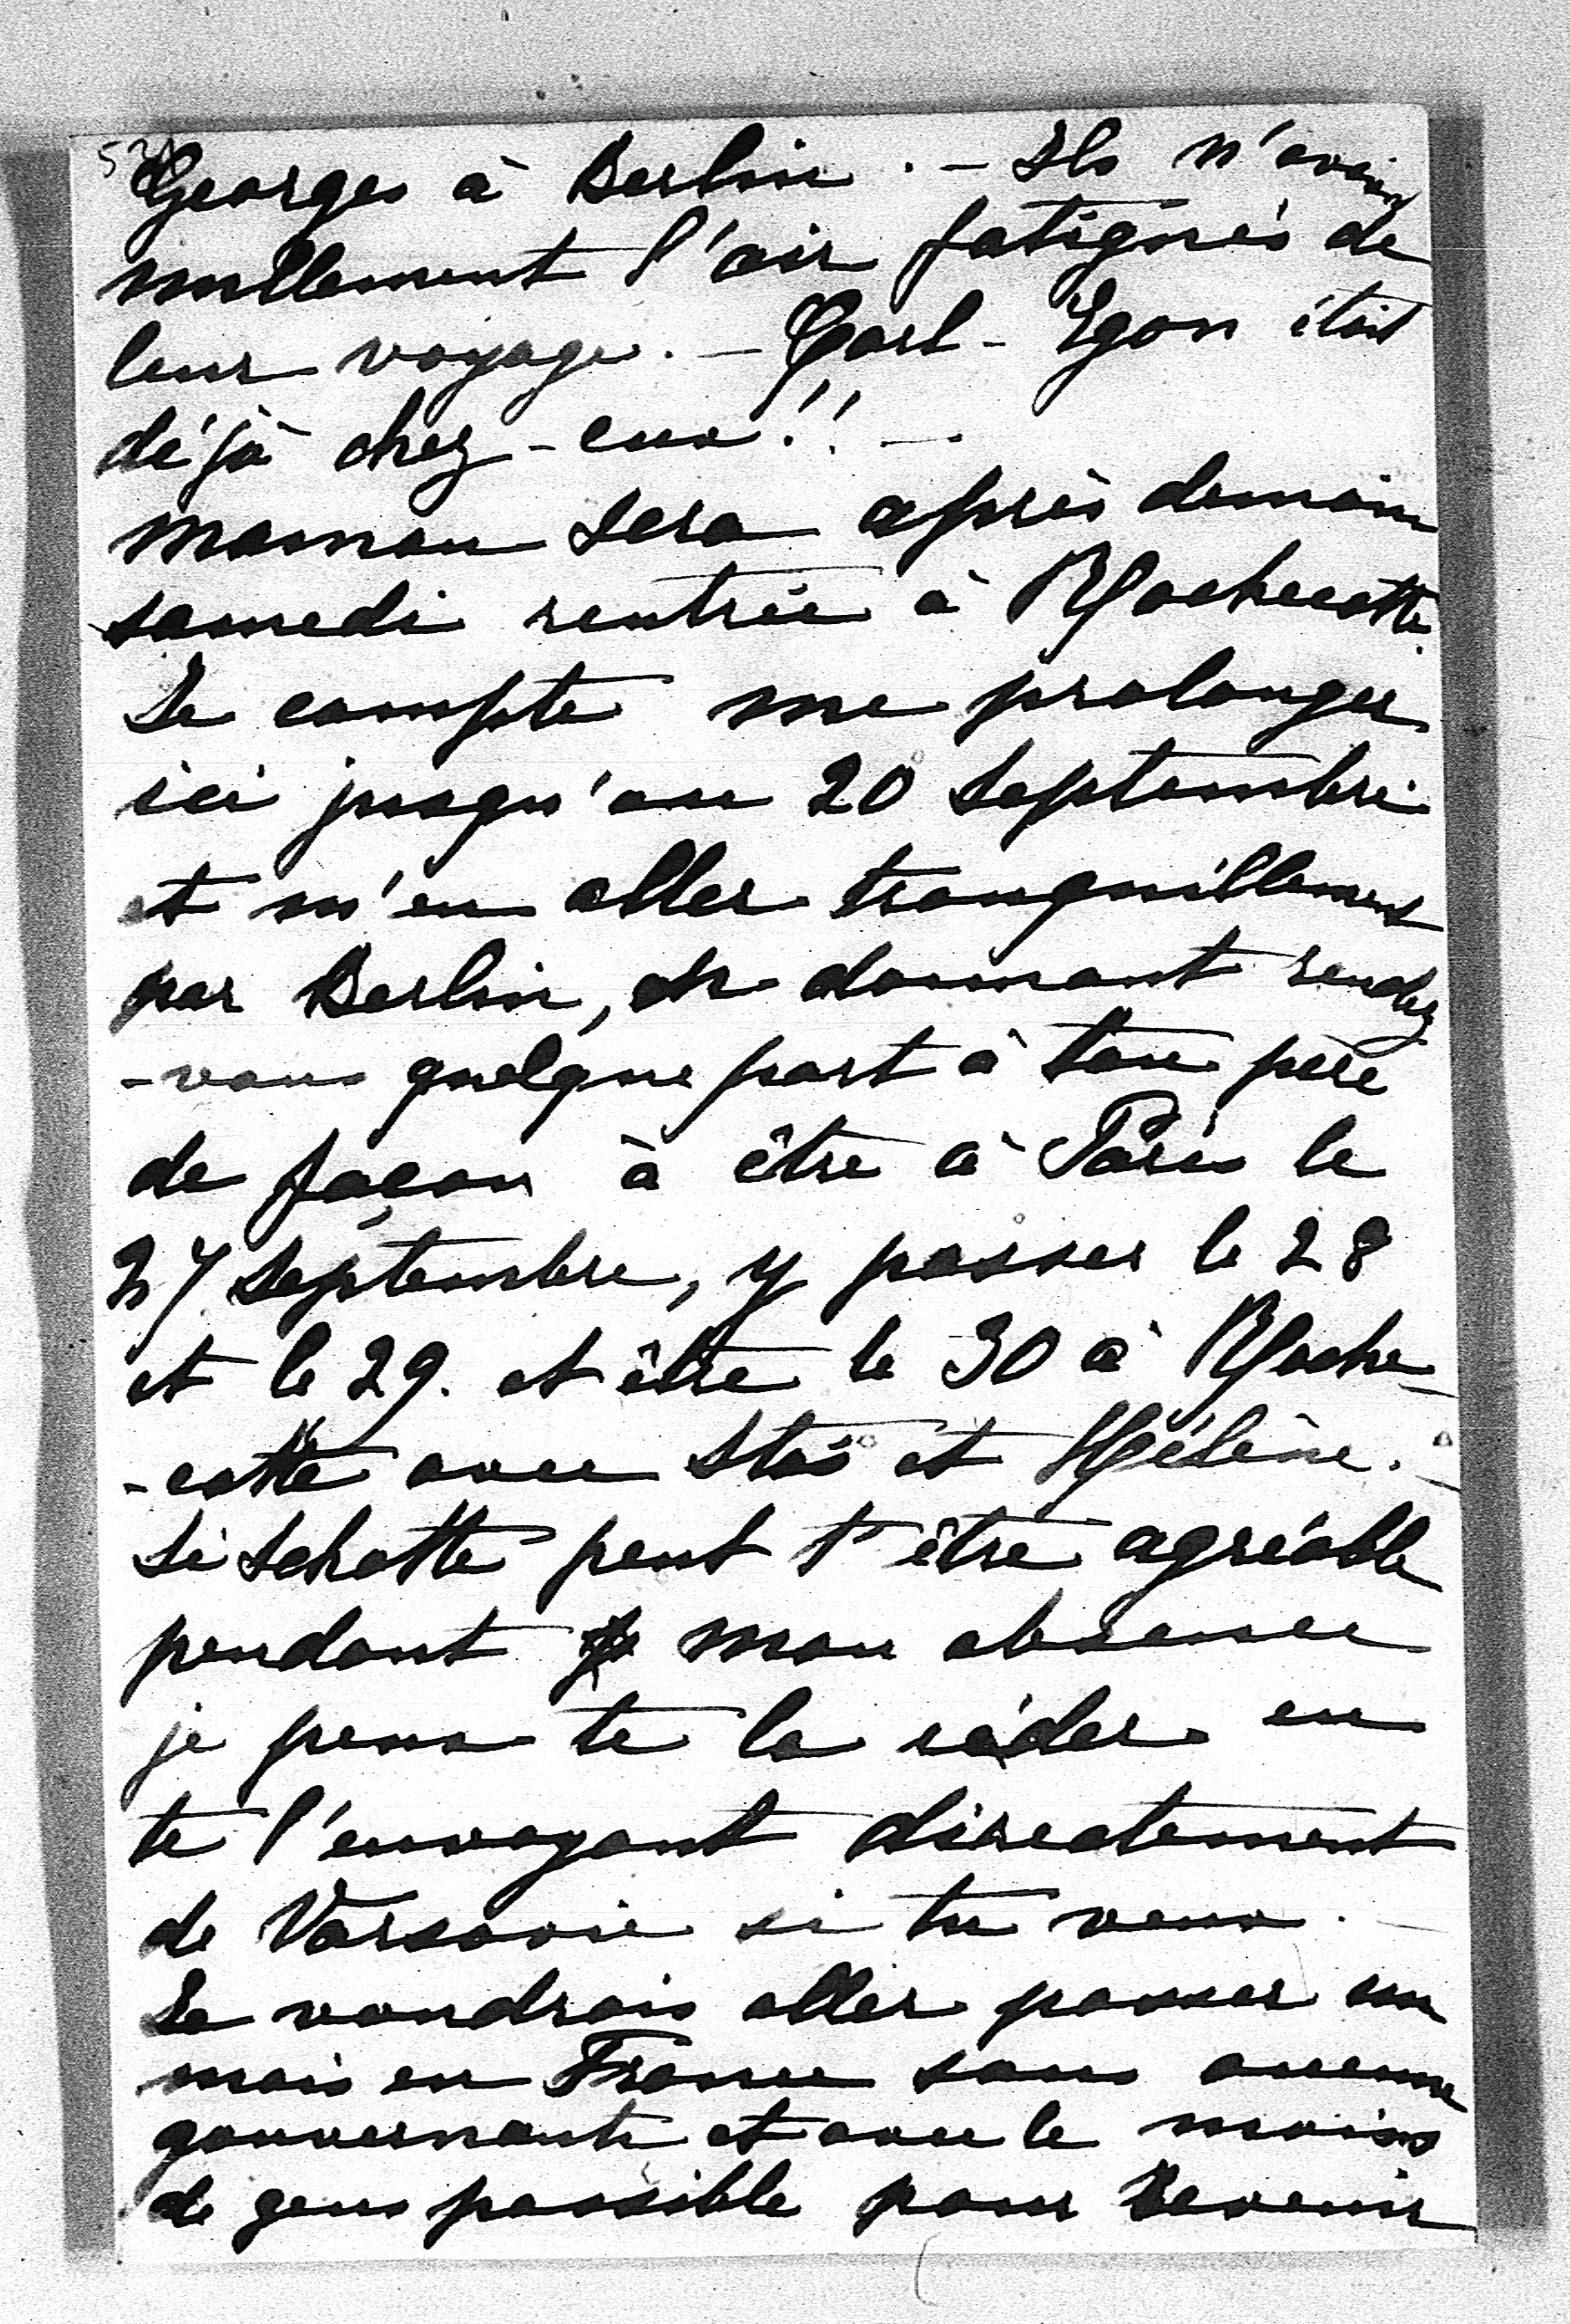 Georges à Berlin. – Ils n'avaient
nullement l'air fatignés de
leur voyage. – Carl-Egon était
déjà chez-eux!! –
maman sera après demain
samedi rentrée à Rochecotte.
Je compte me prolonger
ici jusqu'au 20 Septembre
et m'en aller tranquillement
par Berlin, donnant rendez
-vous quelque part à ton père
de façon à être à Paris le
27 Septembre, y passer le 28
et le 29. et être le 30 à Roche-
-cotte avec Stas et Hélène.
Si Schotte peut t'être agréable
pendant mon absence
je peux te la céder en
te l'envoyant directement
de Varsovie si tu veux. –
Je voudrais aller passer un
mois en France sans aucune
gouvernante et avec le moins
de gens possible pour revenir